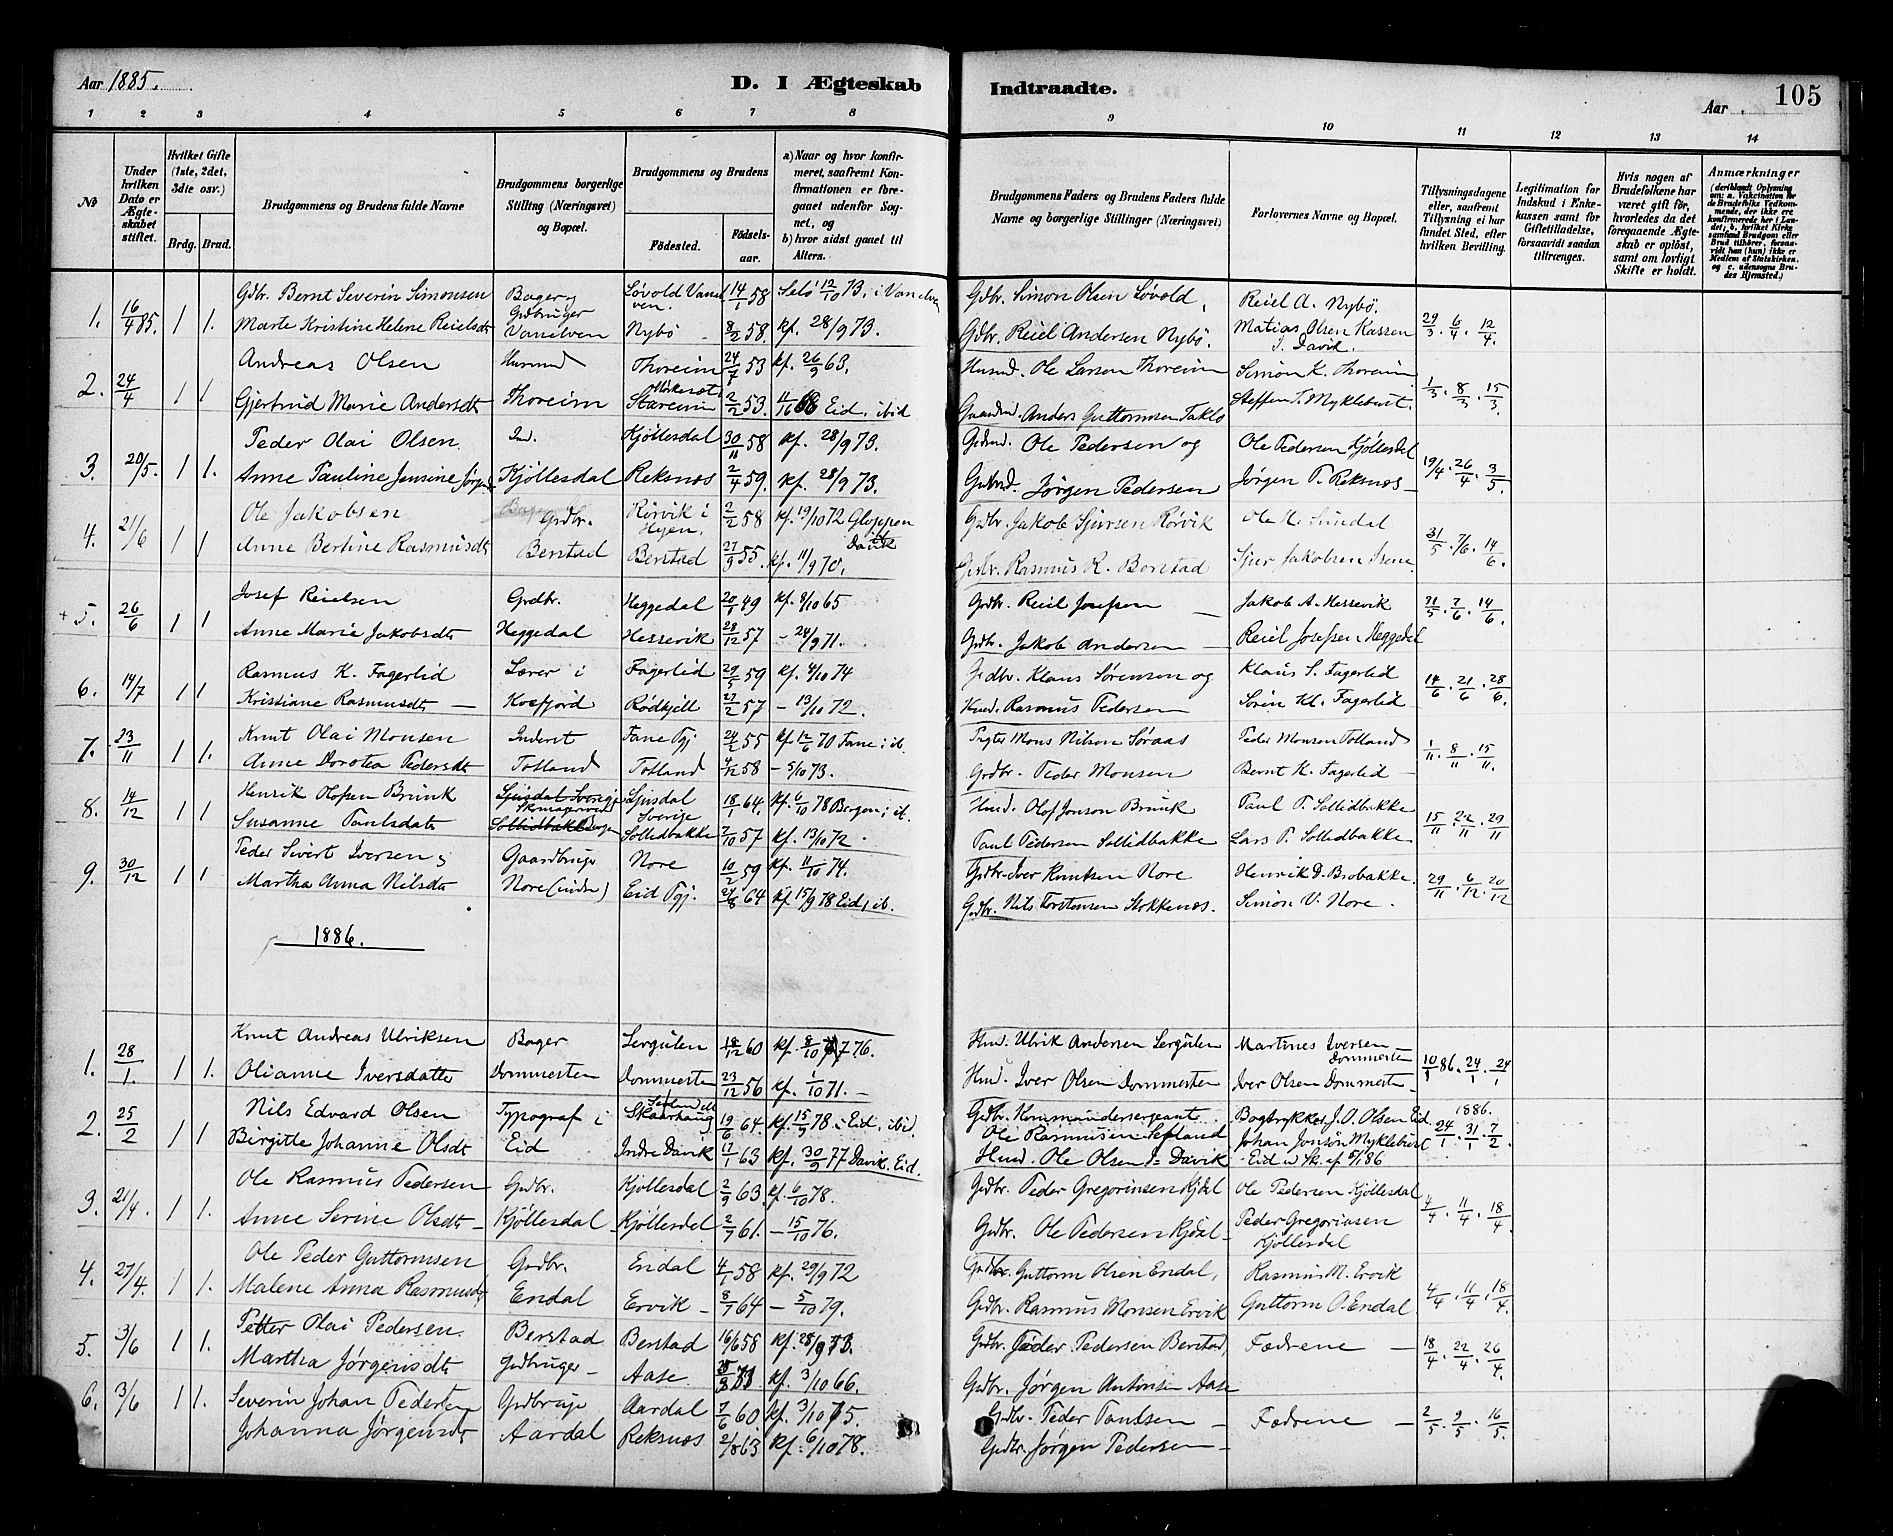 Aar 1885.
D. I Ægteskab Indtraadte.
Aar 105
1 2 3 4 5 6 7 8 9 10 11 12 13 14
No
Under hvilken Dato er Ægteskabet stiftet.
Hvilket Gifte (1ste, 2det, 3die osv.)
Brdg. Brud.
Brudgommens og Brudens fulde Navne
Brudgommens borgerlige Stilling (Næringsvei) og Bopæl.
Brudgommens og Brudens
Fødested. Fødselsaar.
a) Naar og hvor konfirmeret, saafremt Konfirmationen er foregaaet udenfor Sognet, og
b) hvor sidst gaaet til Alters.
Brudgommens Faders og Brudens Faders fulde Navne og borgerlige Stillinger (Næringsvei)
Forlovernes Navne og Bopæl.
Tillysningsdagene eller, saafremt Tillysning ei har fundet Sted, efter hvilken Bevilling.
Legitimation for Indskud i Enkekassen samt for Giftetilladelse, forsaavidt saadan tiltrænges.
Hvis nogen af Brudefolkene har været gift før, hvorledes da det foregaaende Ægteskab er opløst, samt om lovligt Skifte er holdt.
Anmærkninger
1. 16/4 85. 1 1. Gdbr. Bernt Severin Simonsen Bager og Gdbruger Løvold Vanelven. 14/1 58 Selø 12/10 73, i Vanelven Gdbr. Simon Olsen Løvold, Reiel A. Nybø. 29/3. 6/4. 12/4.
Marte Kristine Helene Reielsdt Vanelven Nybø 8/2 58. kf. 28/9 73. Gdbr. Reiel Andersen Nybø. Matias Olsen Kassen I. David.
2. 24/4 1 1 Andreas Olsen Husmd Thoreim 24/7 53 kf. 26/9 63. Husmd. Ole Larsen Thoreim Simon K. Thoreim 1/3. 8/3. 15/3.
Gjertrud Marie Andersdt Thoreim Stareim 2/2 53. Eid, ibid Gaardmd. Anders Guttormsen Taklo Steffen T. Myklebust.
3. 20/5. 1 1. Peder Olai Olsen Ind. Kjøllesdal 30/11 58 kf. 28/9 73. Gdbmd. Ole Pedersen og Ole Pedersen Kjøllesdal 19/4. 26/4. 3/5.
Anne Pauline Jensine Jørgensdt Kjøllesdal Reksnes 2/4 59. kf. 28/9 73. Gdbmd. Jørgen Pedersen Jørgen P. Reksnes
4. 21/6 1 1 Ole Jakobsen Grdbr. Rørvik i Hyen. 2/2 58 kf. 19/10 72 Gloppen Grdbr. Jakob Sjursen Rørvik Ole K. Sundal 31/5. 7/6. 14/6.
Anne Bertine Rasmusdt Berstad Berstad 27/9 55. kf. 11/9 70. Davik Grdbr. Rasmus R. Berstad Sjur Jakobsen Isene.
+ 5. 26/6 1 1 Josef Reielsen Grdbr. Heggedal 20/1 49 kf. 8/10 65 Grdbr. Reiel Josefsen Jakob A. Hessevik 31/5. 7/6. 14/6.
Anne Marie Jakobsdt Heggedal Hessevik 28/12 57 - 24/9 71. Grdbr. Jakob Andersen Reiel Josefsen Heggedal
6. 14/7 1 1 Rasmus K. Fagerlid Lærer i Fagerlid 29/5 59 kf. 4/10 74 Grdbr. Klaus Sørensen og Klaus S. Fagerlid 14/6. 21/6. 28/6.
Kristiane Rasmusdt Rødkjell 27/2 57 - 13/10 72. Hmd. Rasmus Pedersen Søren Kl. Fagerlid
7. 23/11 1 1. Knut Olai Monsen Inderst Fane Pgj. 24/2 55 kf. 12/6 70 Fane; ib. Pagter Mons Nilsen Søraas Peder Monsen Totland 1/11. 8/11. 15/11.
Anne Dorotea Pedersdt Totland Totland 4/12 58 - 5/10 73. Grdbr. Peder Monsen Bernt K. Fagerlid
8. 14/12 1 1 Henrik Olofsen Brünk Ljusdal Sverige Ljusdal Sverige 18/1 64. kf. 6/10 78 Bergen; ib. Hmd. Olof Jonson Brünk Paul P. Sollidbakke 15/11. 22/11. 29/11
Susanne Paulsdatr Sollidbakke Sollidbakke 7/10 57 kf. 13/10 72. Paul Pedersen Sollidbakke Lars P. Sollidbakke
9. 30/12 1 1 Peder Sivert Iversen Gaardbruger Nore 10/2 59 kf. 11/10 74. Grdbr. Iver Knutsen Nore Henrik D. Brobakke. 29/11. 6/12. 20/12
Martha Anna Nilsdt Nore (indre) Eid Pgj. 27/8 64 kf. 15/9 78 Eid, ib. Grdbr. Nils Torstensen Stokkenes. Simon V. Nore.
1886.
1. 28/1. 1 1. Knut Andreas Ulriksen Bager Lergulen 18/12 60 kf. 8/10 76. Hmd. Ulrik Andersen Lergulen Martines Iversen Dommersten 10/1 86. 24/1. 24/1
Olianne Iversdatter Dommersten Dommersten 23/12 56 kf. 1/10 71. Hmd. Iver Olsen Dommersten Iver Olsen Dommersten
2. 25/2 1 1 Nils Edvard Olsen Typograf i Skaarhaug 19/6 64 kf. 15/9 78 Eid, ibid. Gdbr. Kommandersergeant Ole Rasmusen Sefland Bogtrykker J. O. Olsen Eid. 1886. 24/1. 31/1. 7/2.
Birgitte Johanne Olsdt Eid Indre Davik 17/1 63 kf. 30/9 77 Davik. Eid. Hmd. Ole Olsen I= Davik Johan Jonsøn Myklebust Eid
3. 21/4. 1 1. Ole Rasmus Pedersen Grdbr. Kjøllesdal 2/9 63. kf. 6/10 78. Grdbr. Peder Gregoriusen Kjdal Ole Pedersen Kjøllesdal 4/4. 11/4. 18/4.
Anne Serine Olsdt Kjøllesdal Kjøllesdal 2/7 61. - 15/10 76. Grdbr. Ole Pedersen Kjdal Peder Gregoriusen Kjøllesdal
4. 27/4. 1 1. Ole Peder Guttormsen Grdbr. Endal 4/1 58 kf. 29/9 72 Grdbr. Guttorm Olsen Endal, Rasmus M. Ervik 4/4. 11/4. 18/4.
Malene Anna Rasmusdt Endal Ervik 8/7 64 - 5/10 79. Grdbr. Rasmus Monsen Ervik Guttorm O. Endal
5. 3/6 1 1. Petter Olai Pedersen. Berstad Berstad 16/6 58 kf. 28/9 73. Grdbr. Peder Pedersen Berstad, Fædrene 18/4. 22/4. 26/4.
Martha Jørgensdt Grdbruger Aase kf. 3/10 66. Grdbr. Jørgen Antonsen Aase
6. 3/6 1 1. Severin Johan Pedersen Grdbruger Aardal 7/6 60 kf. 3/10 75. Grdbr. Peder Paulsen Fædrene 2/5. 9/5. 16/5.
Johanna Jørgensdt Aardal Reksnes 2/8 63 kf. 6/10 78. Grdbr. Jørgen Pedersen